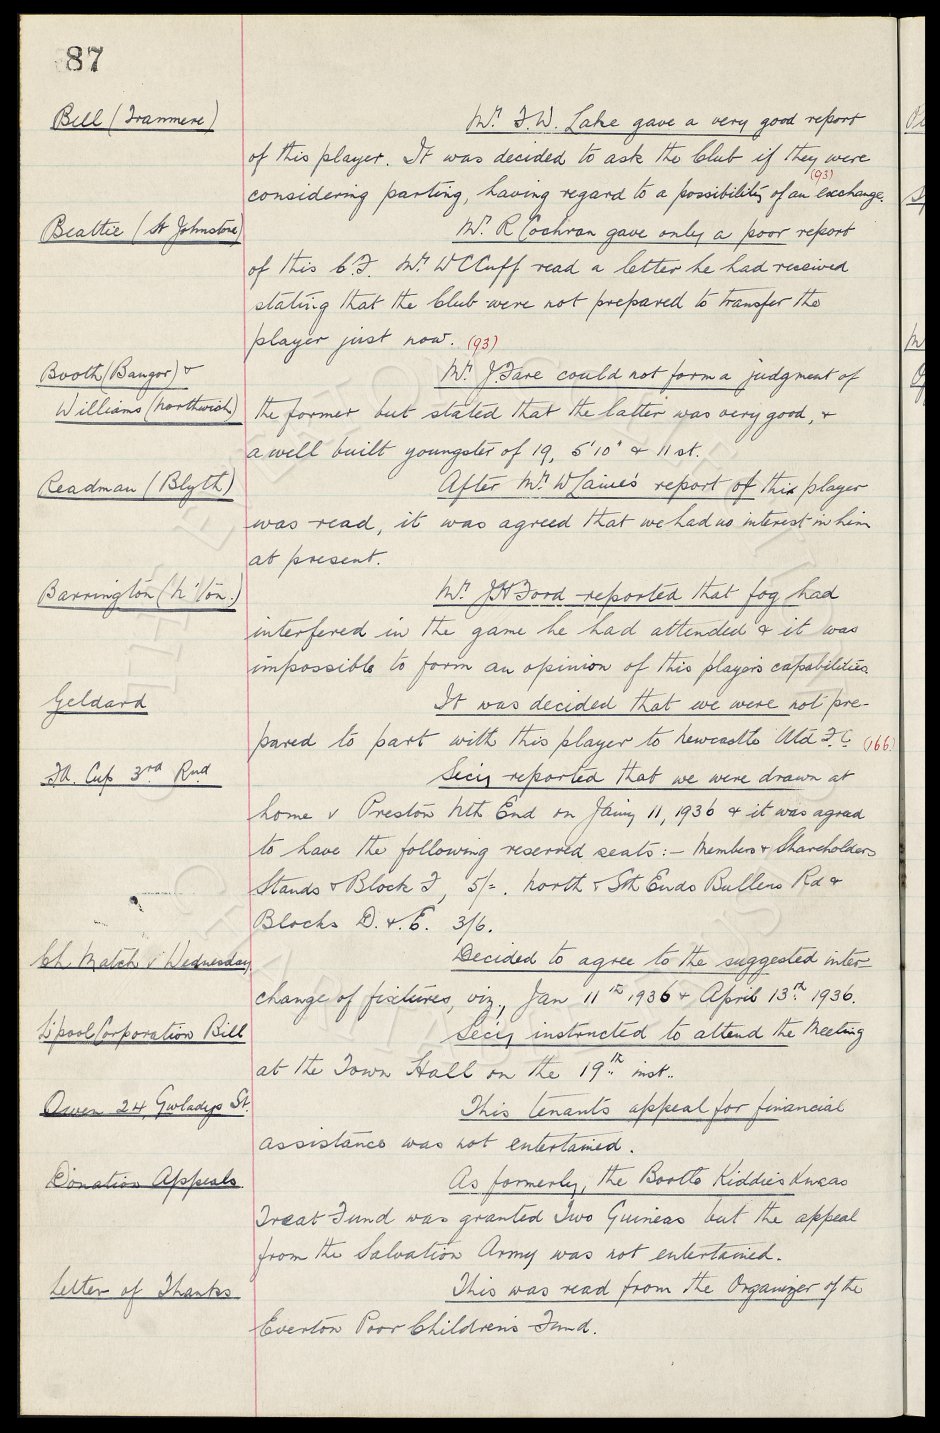 87
Bell (Tranmere)
Mr. T.W. Lake gave a very good report
of this player. It was decided to ask the Club if they were
(93)
considering parting, having regard to a possibility of an exchange.
Beattie (St Johnstone)
Mr. R Cochran gave only a poor report
of this C.F. Mr. W C Cuff read a letter he had received
stating that the Club were not prepared to transfer the
player just now. (93)
Booth (Bangor) &
Mr. J Fare could not form a judgment of
Williams (Northwich)
the former but stated that the latter was very good, &
a well built youngster of 19, 5'10" & 11 st.
Readman (Blyth)
After Mr. W Laine's report of this player
was read, it was agreed that we had no interest in him
at present.
Barrington (N'ton.)
Mr. J H Ford reported that fog had
interfered in the game he had attended & it was
impossible to form an opinion of this player's capabilities.
Geldard
It was decided that we were not pre-
pared to part with this player to Newcastle Utd F.C. (166)
F.A. Cup 3rd Rnd
Secy reported that we were drawn at
home v Preston Nth End on Jany 11, 1936 & it was agreed
to have the following reserved seats:- Members & Shareholders
Stands & Block F, 5/=. North & Sth Ends Bullens Rd &
Blocks D. & E. 3/6.
Ch. Match v Wednesday
Decided to agree to the suggested inter-
change of fixtures, viz., Jan 11th 1936 & April 13th 1936.
L'pool Corporation Bill
Secy instructed to attend the Meeting
at the Town Hall on the 19th inst.
Owen 24, Gwladys St.
This tenants appeal for financial
assistance was not entertained.
Donation Appeals
As formerly, the Bootle Kiddies Xmas
Treat Fund was granted Two Guineas but the appeal
from the Salvation Army was not entertained.
Letter of Thanks
This was read from the Organizer of the
Everton Poor Children's Fund.